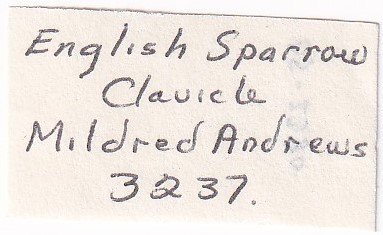 English Sparrow
Clavicle
Mildred Andrews
3237.